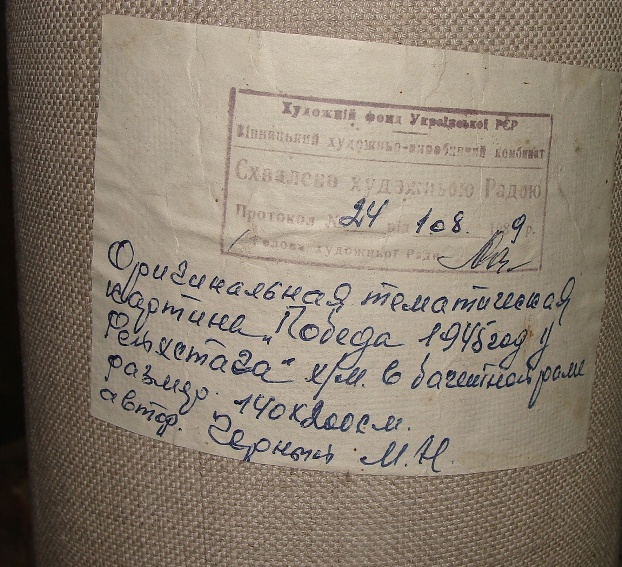 Художній фонд Української РСР
Вінницький художньо-виробничий комбінат
Схвалено художньою Радою
Протокол № 24 від 108. 9 р.
Голова художньої Ради
Оригинальная тематическая
картина „Победа 1945 год у
Рейхстага" х/м. в багетной раме
размер. 140х200см.
автор. Черный М.Н.